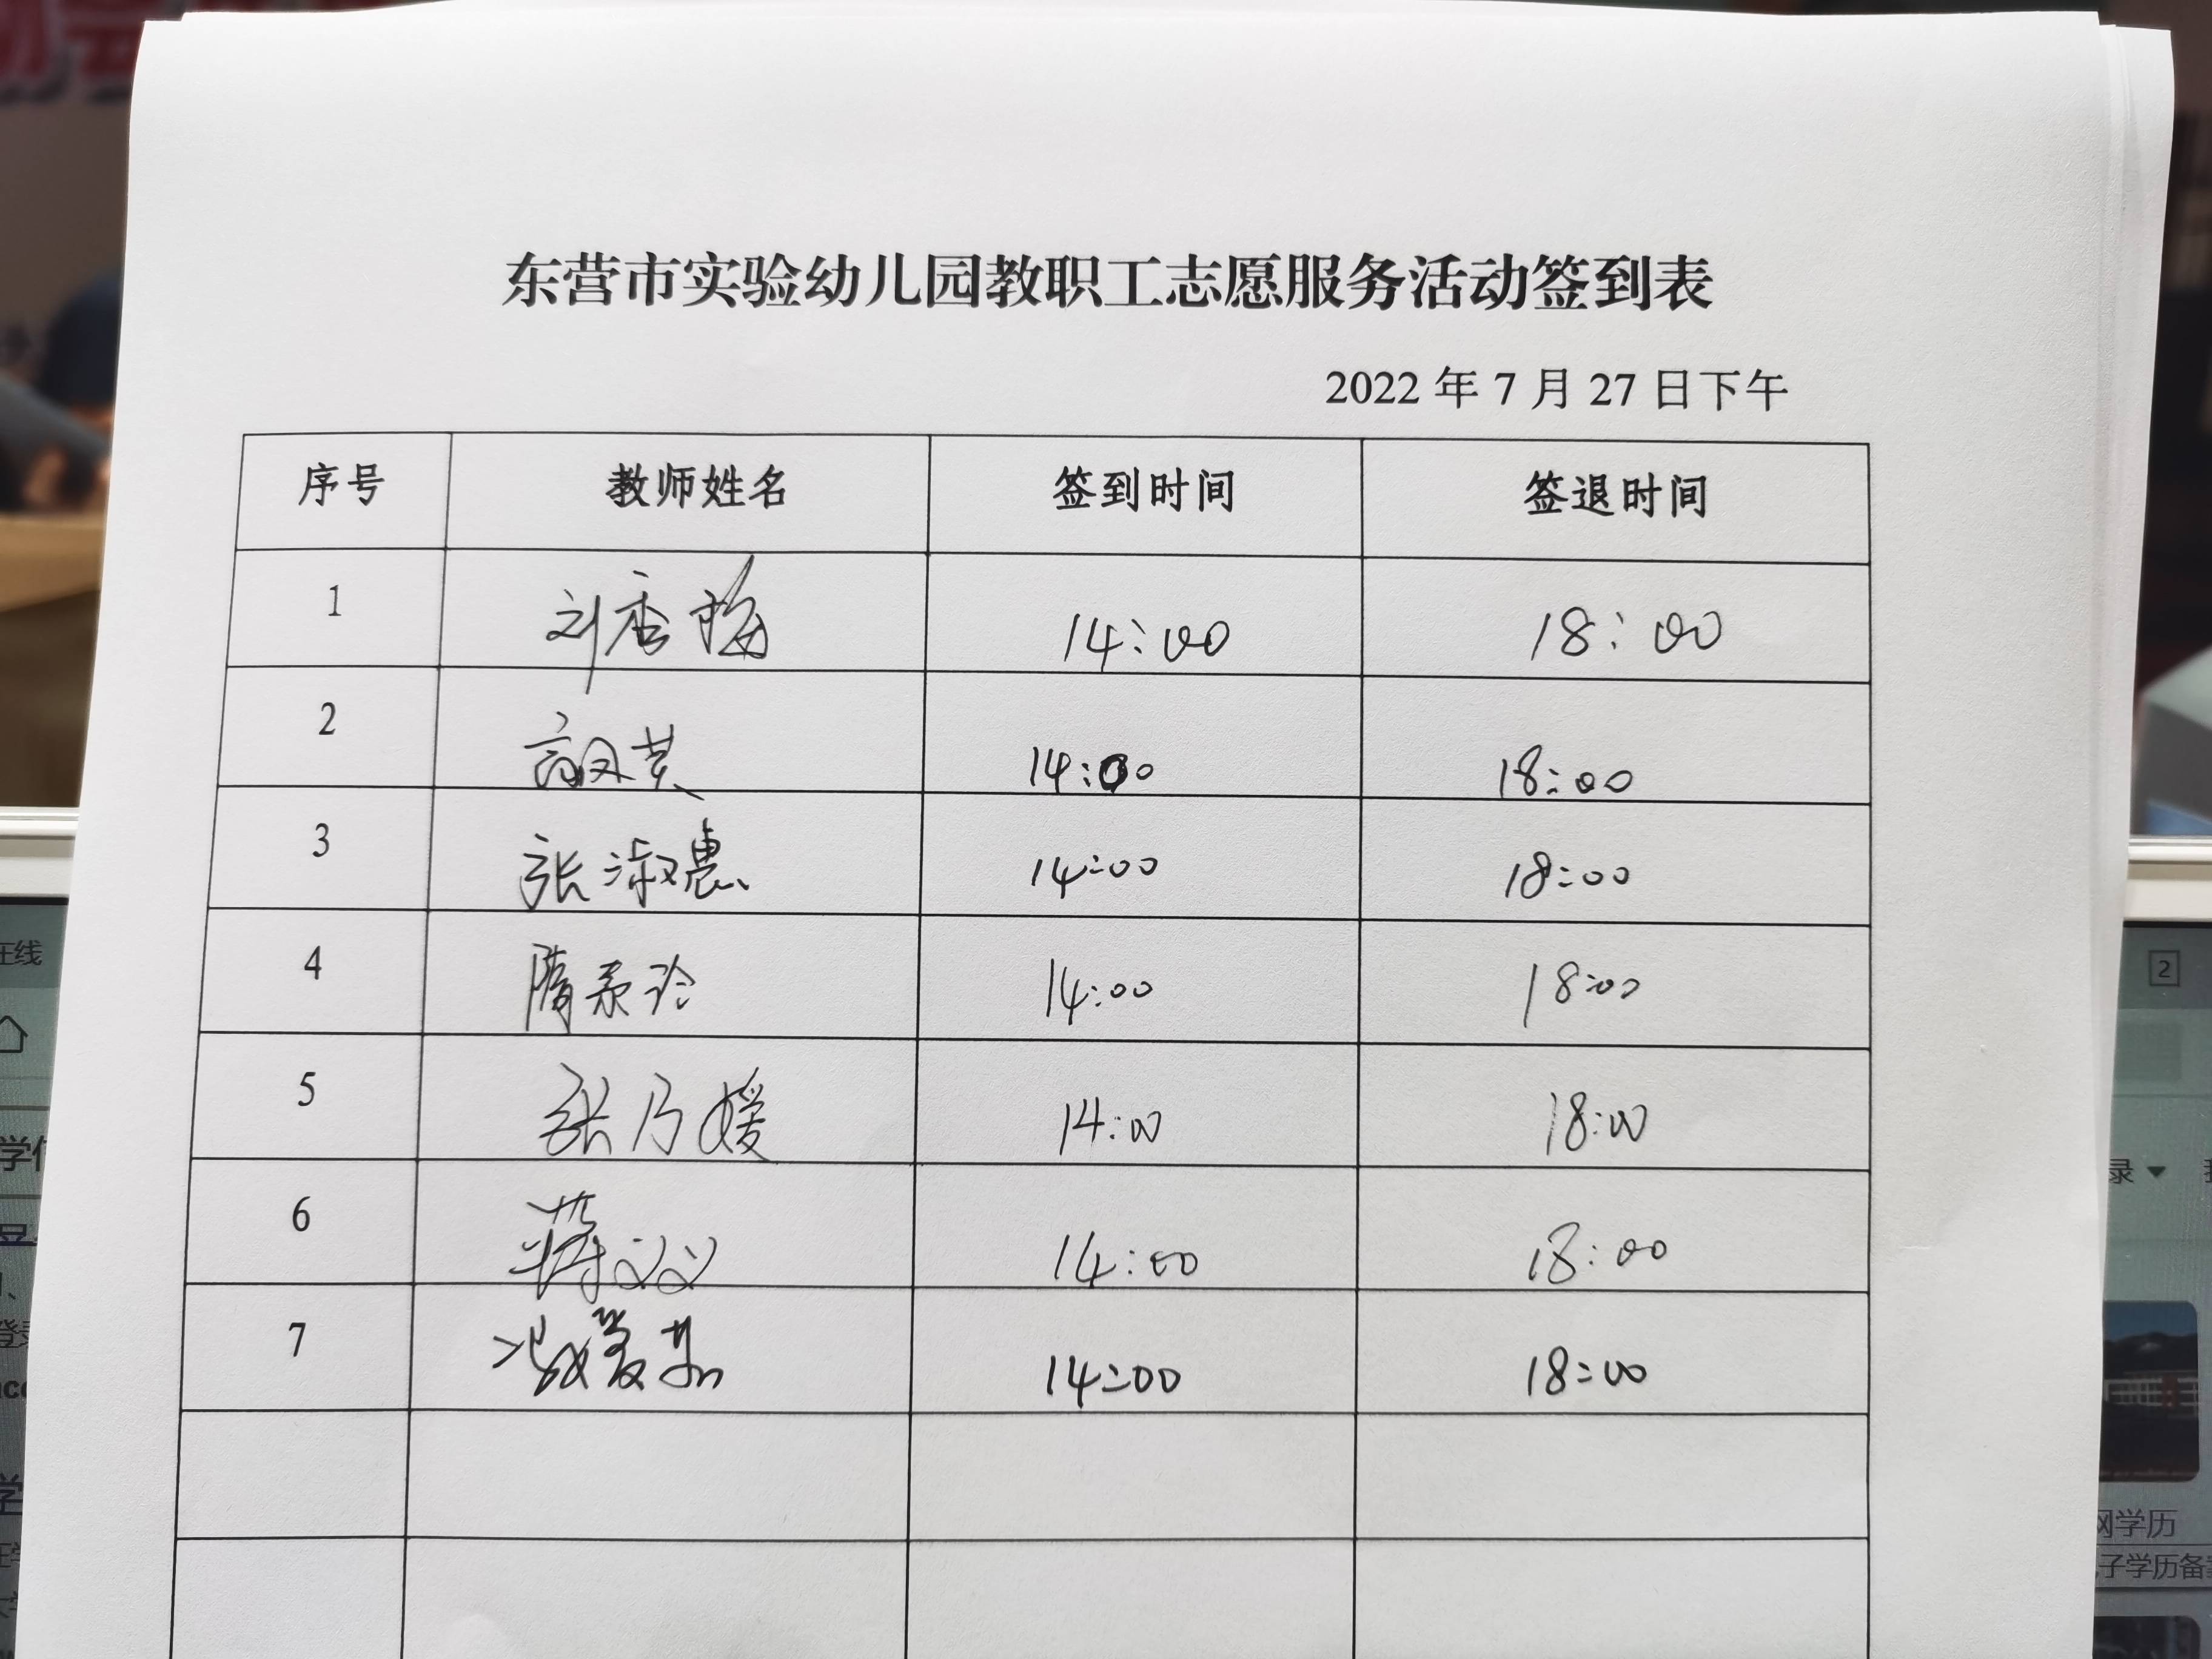 东营市实验幼儿园教职工志愿服务活动签到表
2022 年 7 月 27 日下午
序号 教师姓名 签到时间 签退时间
1 刘香梅 14:00 18:00
2 高凤英 14:00 18:00
3 张淑惠 14:00 18:00
4 隋 14:00 18:00
5 张乃媛 14:00 18:00
6 蒋文文 14:00 18:00
7 冯爱 14:00 18:00
在线
2
录
网学历
子学历备